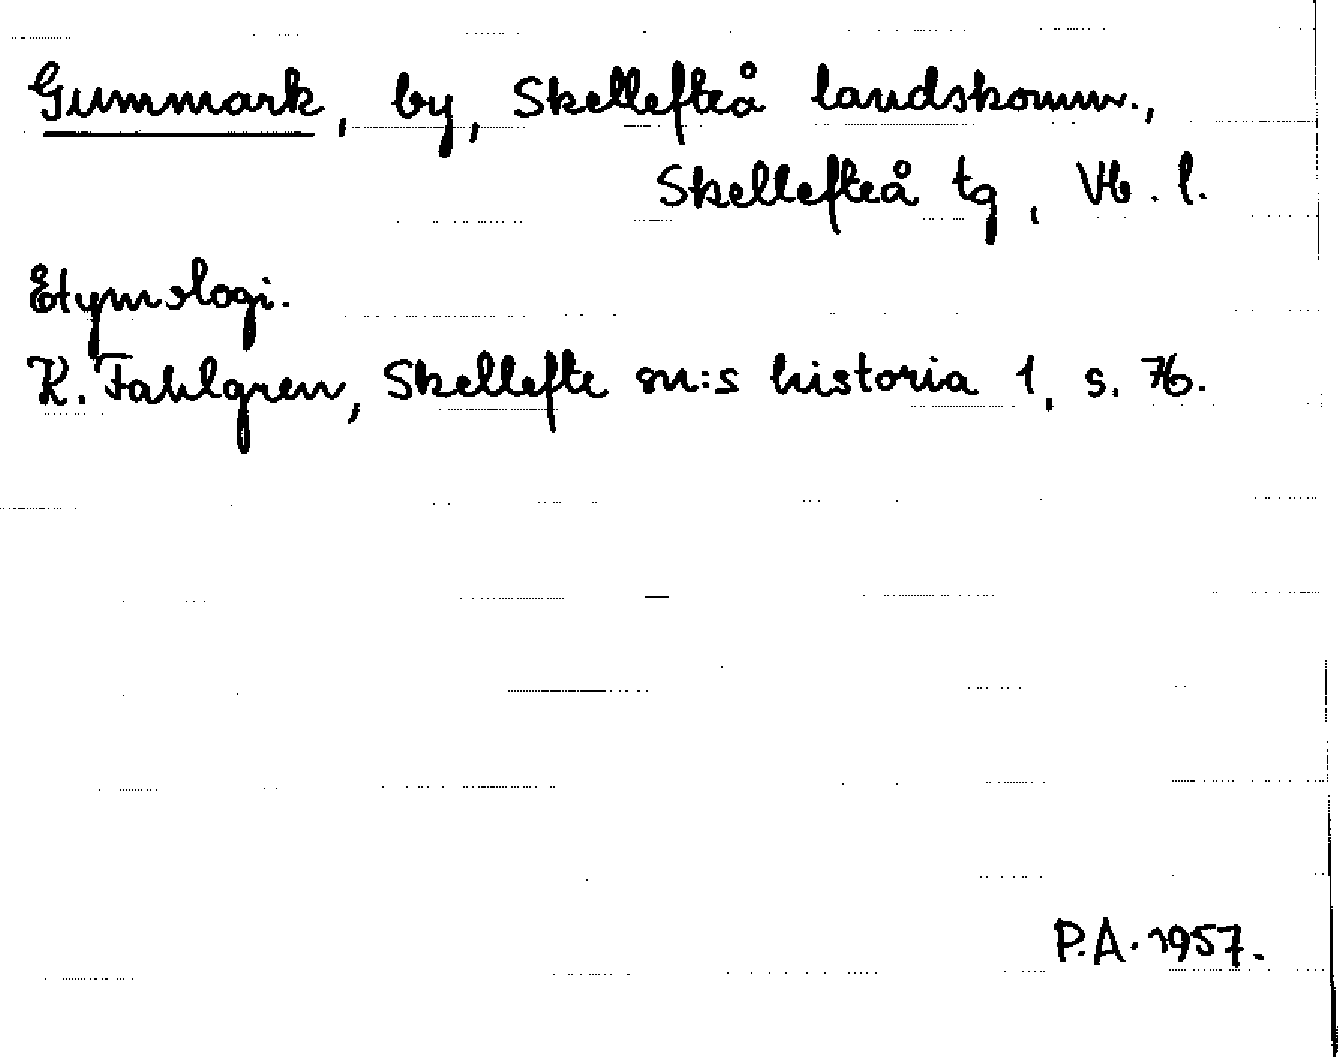 Gummark, by, Skellefteå landskomm.,
Skellefteå tg, Vb. l.
Etymologi.
K. Fahlgren, Skellefte sn:s historia 1, s. 76.
P.A. 1957.